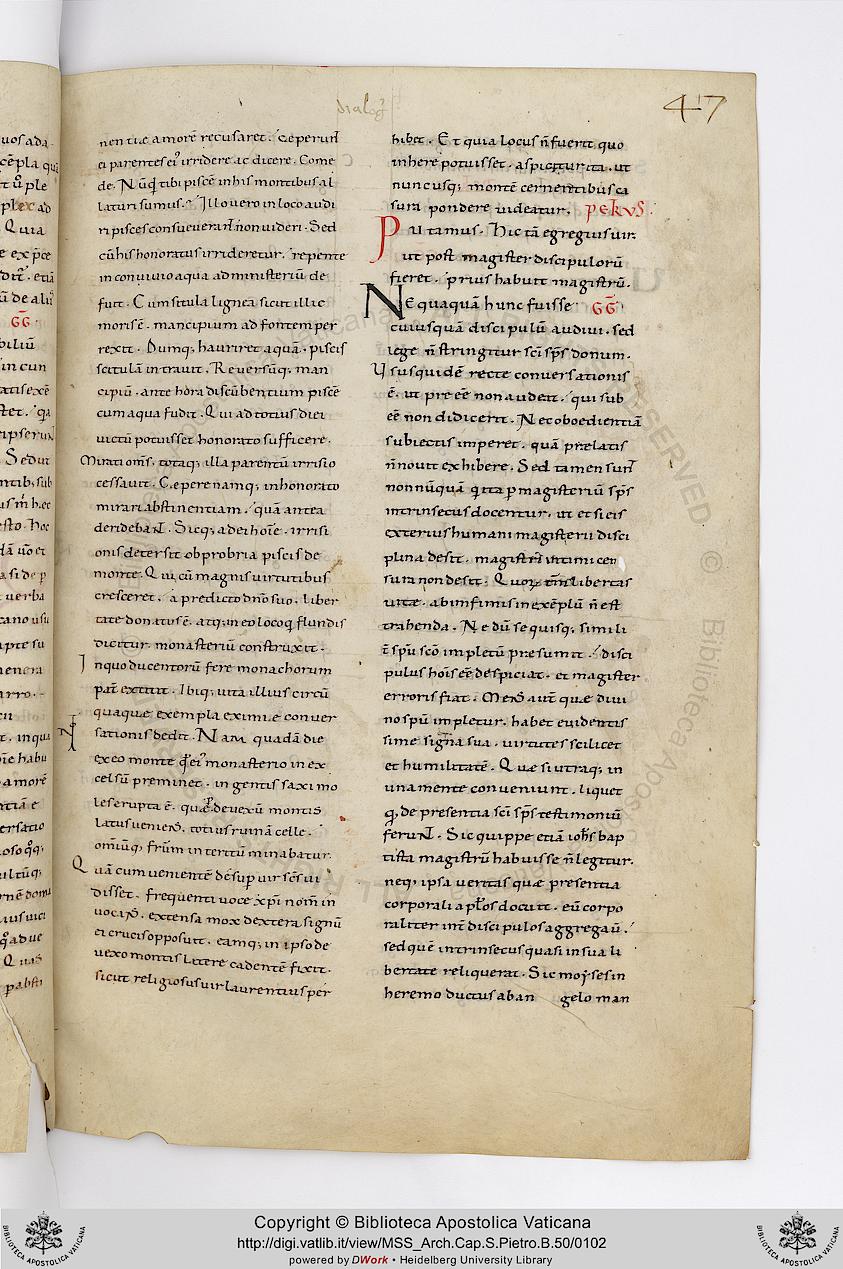 dialog
47
nentiae amorē recusaret. Ceperunt
ei parentes ei' irridere ac dicere. Come
de. Nūqd tibi piscē in his montibus al
laturi sumus? Illo vero in loco audi
ri pisces consueverant. non videri. Sed
cū his honoratus irrideretur. repente
in convivio aqua administeriū de
fuit. Cum situla lignea sicut illic
moris ē. mancipium ad fontem per
rexit. Dumq; hauriret aquā. piscis
scitulā intravit. Reversūq; man
cipiū. ante hora discūbentium piscē
cum aqua fudit. Qui ad totius diei
victū potuisset honorato sufficere.
Mirati oms. totaq; illa parentū irrisio
cessavit. Cepere namq; in honorato
mirari abstinentiam. quā antea
deridebant. Sicq; a dei hoīe. irrisi
onis detersit obprobria piscis de
monte. Qui cū magnis virtutibus
cresceret. a predicto dno suo. liber
tate donatus ē. atq; in eo loco q fundis
dicitur. monasteriū construxit.
In quo ducentorū fere monachorum
pat extitit. Ibiq; vita illius circū
quaque exempla eximie conver
sationis dedit. Nam quadā die
ex eo monte qd ei' monasterio in ex
celsū preminet. ingentis saxi mo
les erupta ē. quae devexū montis
latus veniens. totius ruinā celle.
omiūq; frūm interitū minabatur.
Quam cum venientē desup vir scs vi
disset. frequenti voce xpi nom in
vocans. extensa mox dextera signū
ei crucis opposuit. eamq; in ipso de
vexo montis latere cadentē fixit.
sicut religiosus vir laurentius per
hibet. Et quia locus n̄ fuerit quo
inhere potuisset. aspicitur ita. ut
nunc usq; montē cernentibus ca
sura pondere videatur. PETRVS.
Putamus. Hic tā egregius vir.
ut post magister discipulorū
fieret. prius habuit magistrū.
Nequaquā hunc fuisse GḠ
cuiusquā discipulū audivi. sed
lege n̄ stringitur scī sps donum.
Usus quidē recte conversationis
ē. ut preēē non audeat. qui sub
ēē non didicerit. Nec oboedientiā
subiectis imperet. quā prelatis
n̄ novit exhibere. Sed tamen sunt
non nūquā qui ita p magisteriū sps
intrinsecus docentur. ut et si eis
exterius humani magisterii disci
plina desit. magistri intimi cen
sura non desit. Quorū tm̄ libertas
vitae. ab infimis in exēplū n̄ est
trahenda. Ne dū se quisq; simili
ē spu scō impletū presumit. disci
pulus hois ēē despiciat. et magister
erroris fiat. Mens aut quae divi
no spū impletur. habet evidentis
sime signa sua. virtutes scilicet
et humilitatē. Quae si utraq; in
una mente conveniunt. liquet
qd de presentia scī sps testimoniū
ferunt. Sic quippe etiā iohs bap
tista magistrū habuisse n̄ legitur.
neq; ipsa veritas quae presentia
corporali aplos docuit. eū corpo
raliter int discipulos aggregavit.
sed quē intrinsecus quasi in sua li
bertate reliquerat. Sic moyses in
heremo ductus ab an gelo man
Copyright © Biblioteca Apostolica Vaticana
http://digi.vatlib.it/view/MSS_Arch.Cap.S.Pietro.B.50/0102
powered by DWork • Heidelberg University Library